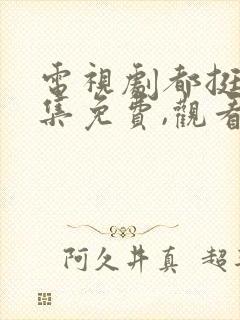 電視劇都挺
集免費,觀看
阿久井真 超